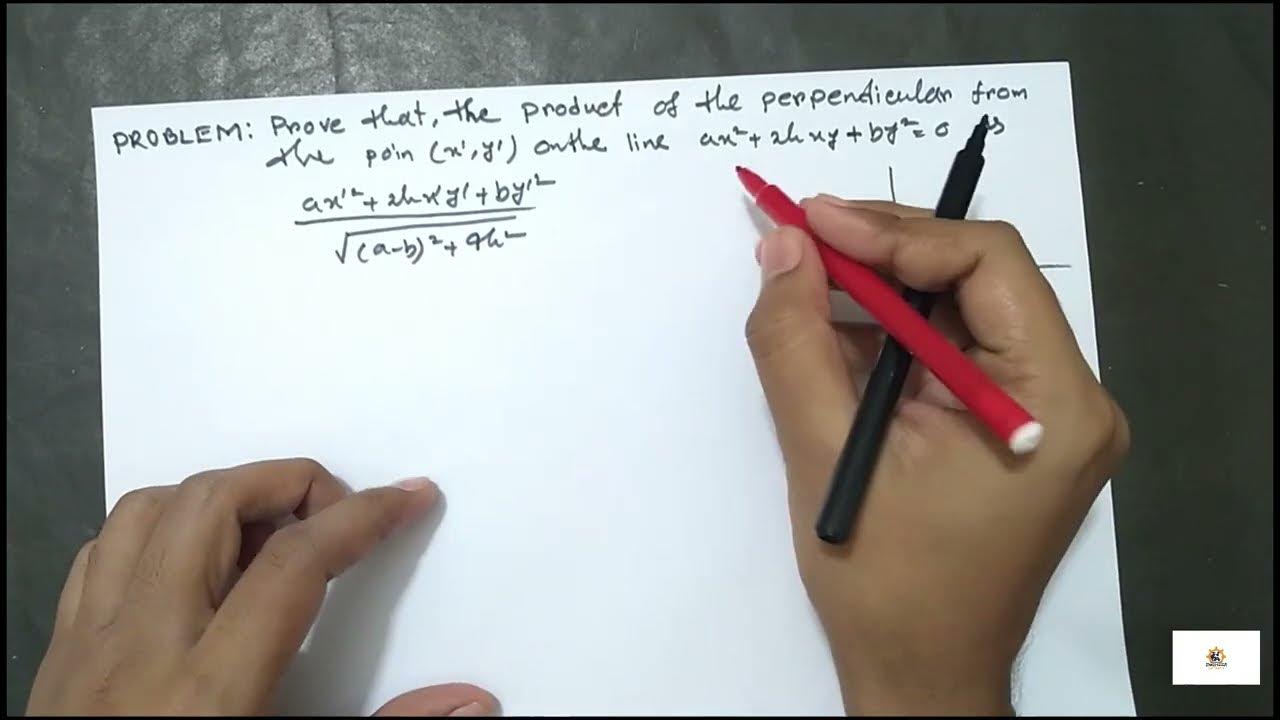 PROBLEM: Prove that, the product of the perpendicular from
the poin (x', y') on the line ax² + 2hxy + by² = 0 is
ax'² + 2hx'y' + by'²
√(a-b)² + 4h²